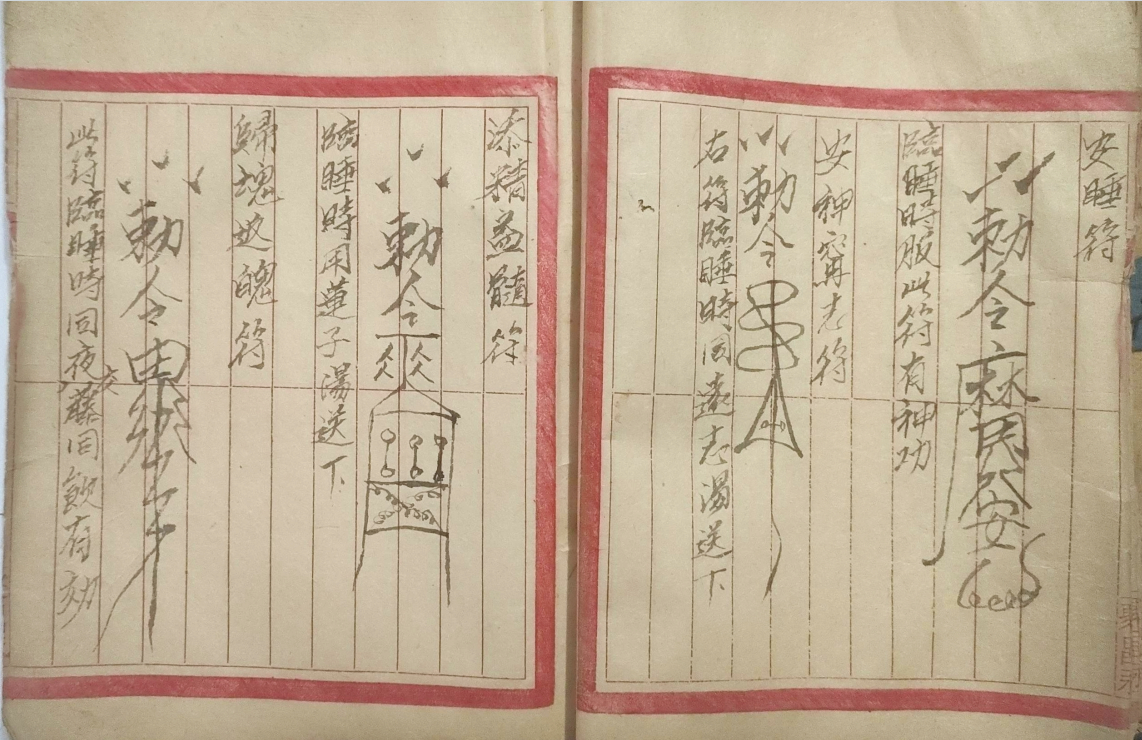 安睡符
勅令
民安
臨睡時服此符有神功
安神甯志符
勅令
右符臨睡時同遠志湯送下
添精益髓符
勅令
臨睡時用蓮子湯送下
歸魂返魄符
勅令
此符臨睡時同夜交藤同飲有効